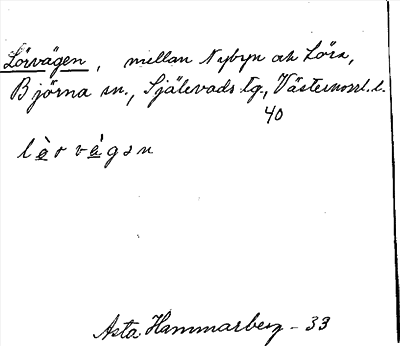 Lörvägen, mellan Nybyn och Löra,
Björna sn., Själevads tg., Västernorrl. l.
40
lö̀r vä̀gən
Asta Hammarberg - 33